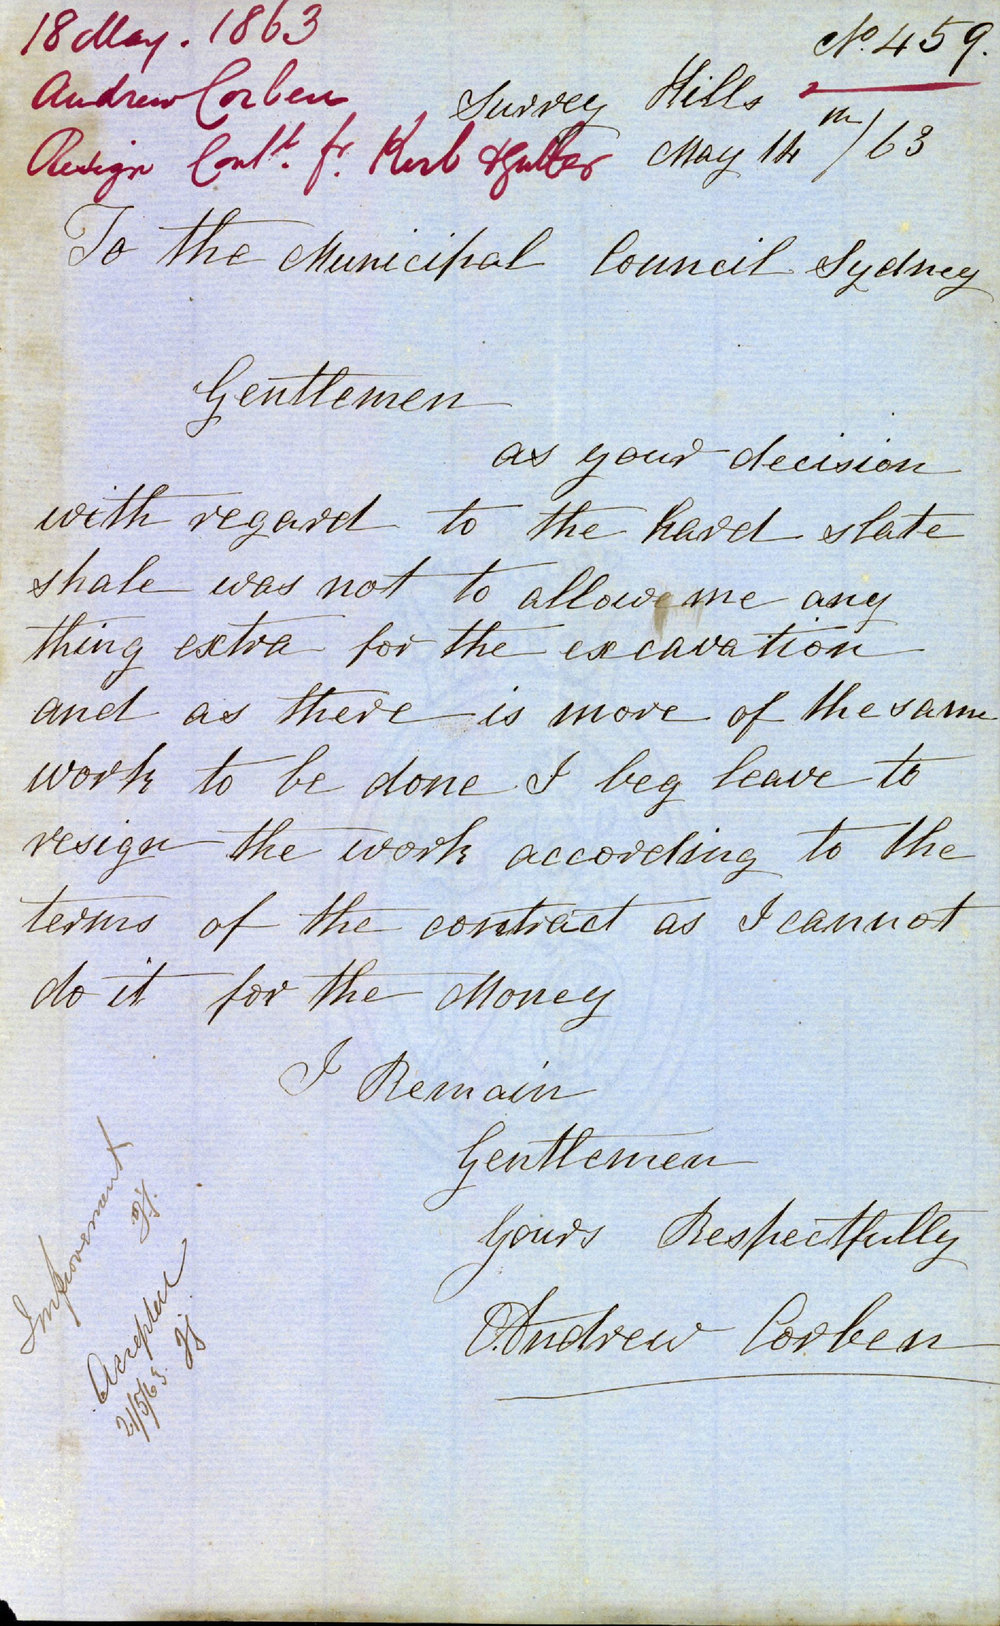 18 May. 1863
Andrew Corben
Resign Contt. fr. Kerb & Gutter
No. 459.
Surrey Hills
May 14th/63
To the Municipal Council Sydney
Gentlemen
as your decision
with regard to the hard slate
shale was not to allow me any
thing extra for the excavation
and as there is more of the same
work to be done I beg leave to
resign the work according to the
terms of the contract as I cannot
do it for the Money
I Remain
Gentlemen
Yours Respectfully
Andrew Corben
Improvement
Accepted
21/5/63.